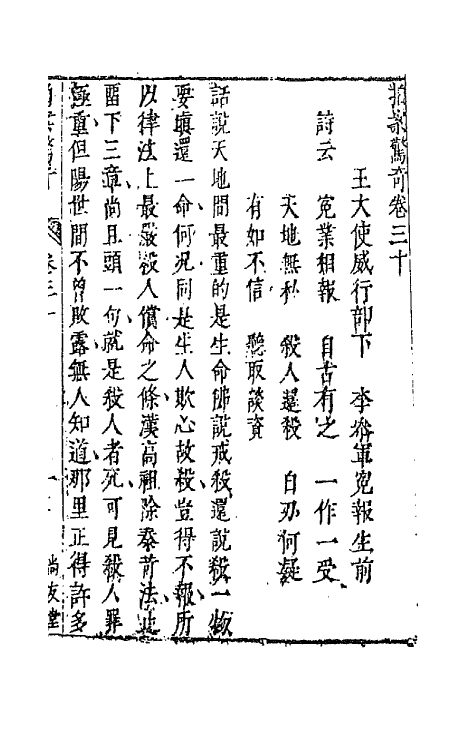 拍案驚奇卷三十
王大使威行部下　李參軍寃報生前
詩云　寃業相報　自古有之　一作一受
天地無私　殺人還殺　白刃何疑
有如不信　聽取談資
話說天地間最重的是生命佛說戒殺還說殺一物
要塡還一命何況同是生人欺心故殺豈得不報所
以律法上最嚴殺人償命之條漢高祖除秦苛法止
留下三章尚且頭一句就是殺人者死可見殺人罪
極重但陽世間不曾敗露無人知道那里正得許多
卷三十
尚友堂